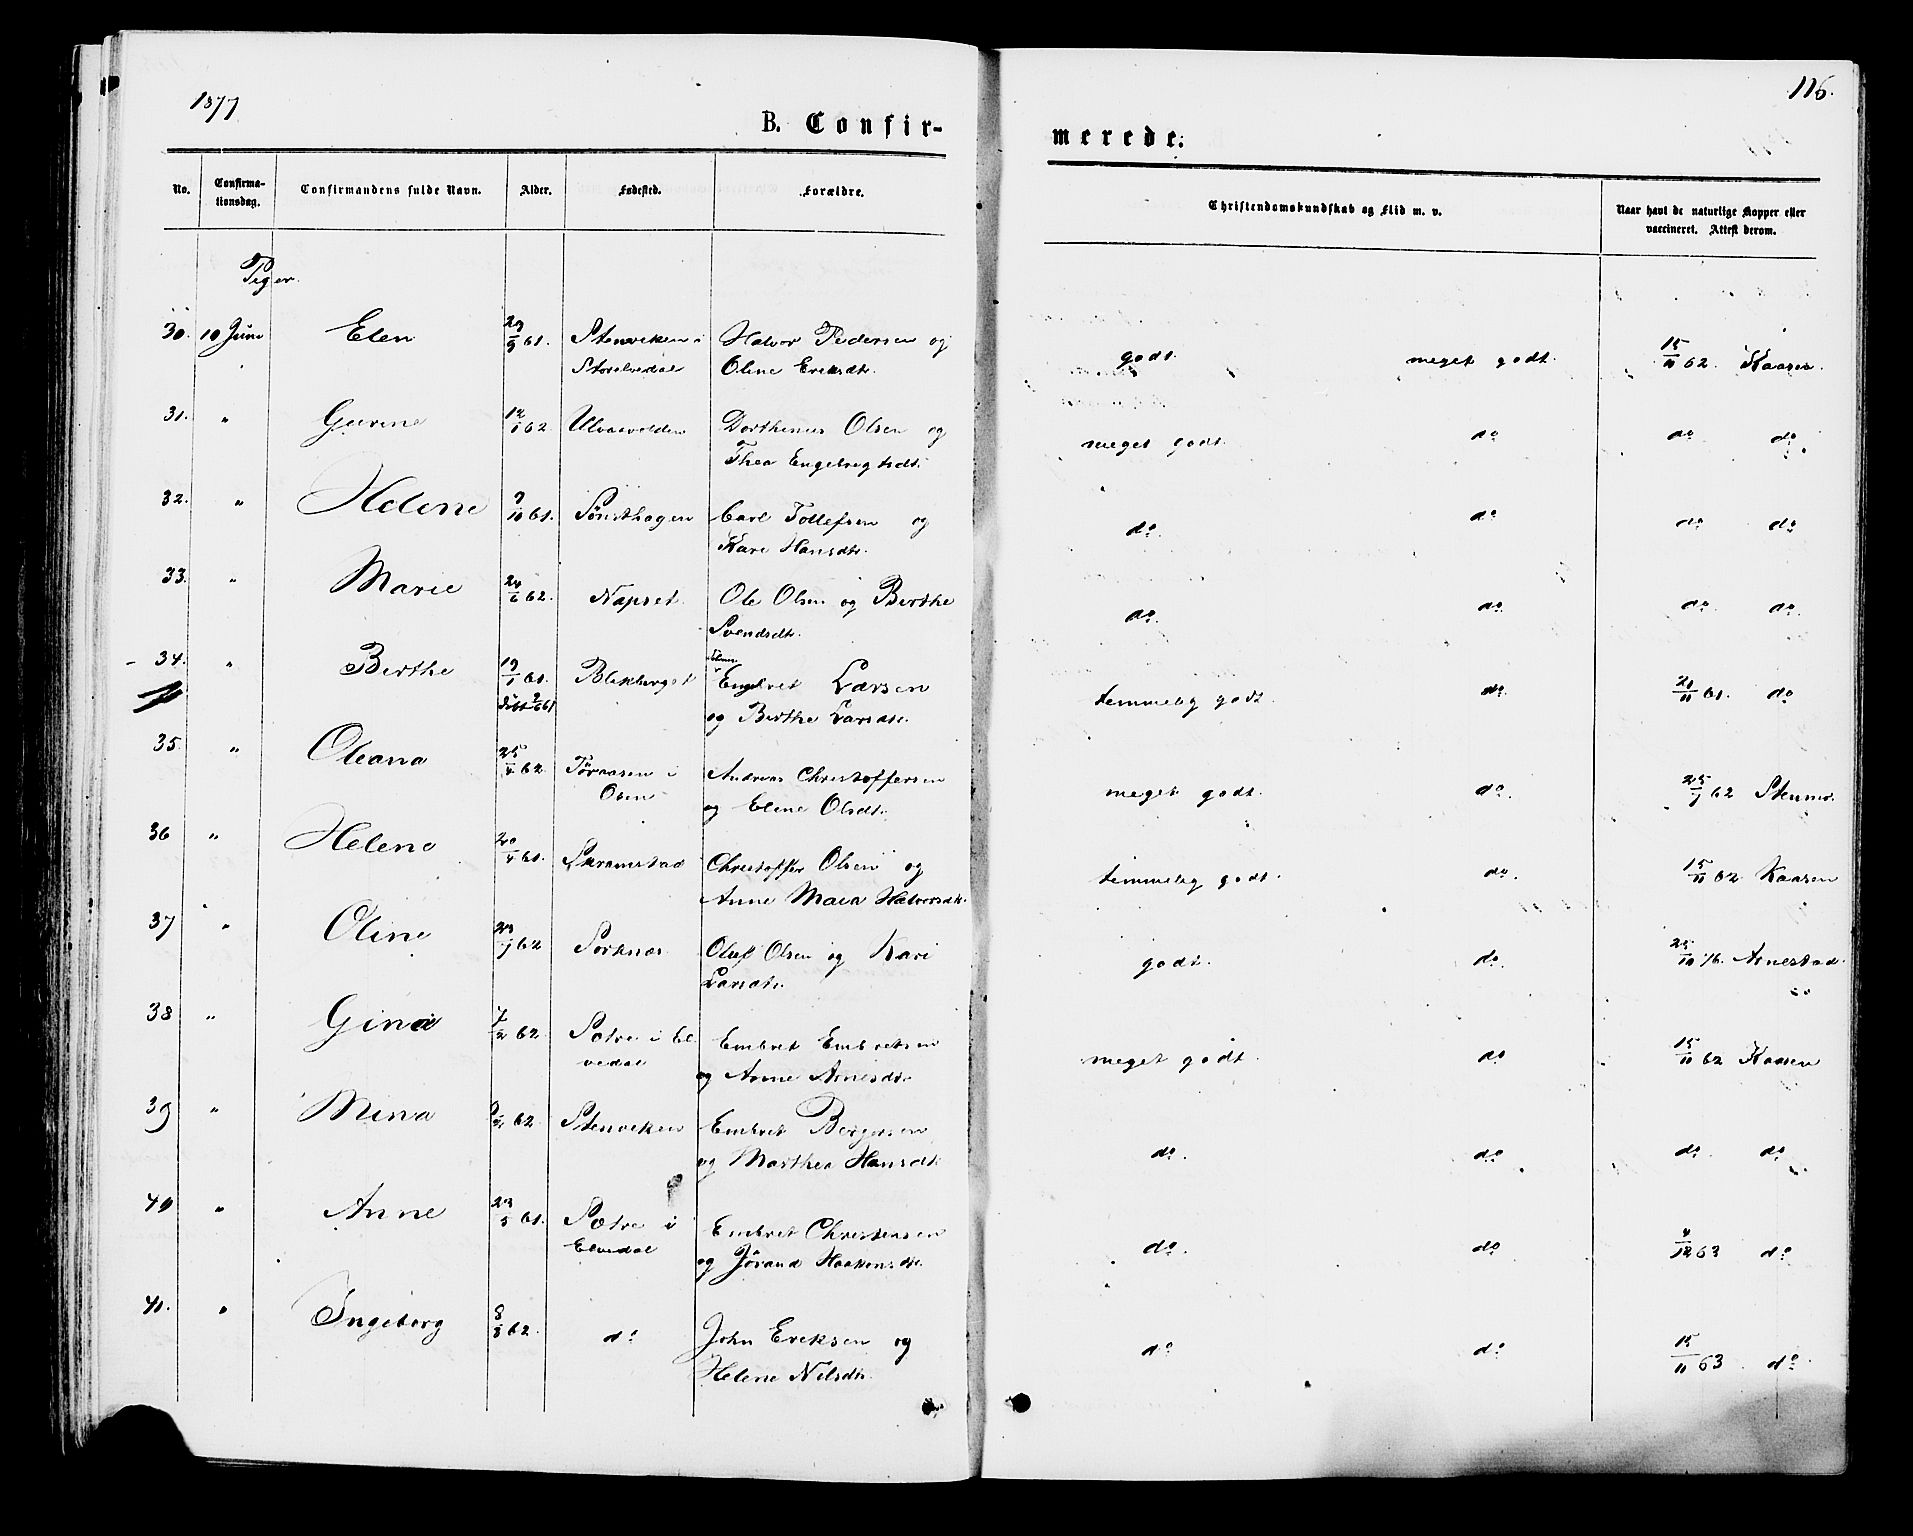 1877
116.
B. Confir-
merede.
No.
Confirma-
tionsdag.
Confirmandens fulde Navn.
Alder.
Fødested.
Forældre.
Christendomskundskab og Flid m. v.
Naar havt de naturlige Kopper eller
vaccineret. Attest derom.
Piger.
30. 10 Juni Elen 29/9 61. Stenviken i Halvor Pedersen og godt. meget godt. 15/11 62. Kaasen.
Storelvedal Oline Eriksdtr.
31. " Gurine 12/1 62. Ulvaavolden Dorthenius Olsen og meget godt. do do do
Thea Engebregtsdtr.
32. " Helene 9/10 61. Sønsthagen Carl Tollefsen og do. do do do
Kari Hansdtr.
33. " Marie 24/6 62. Napset. Ole Olsen og Berthe do. do do. do.
Svendsdtr.
34. " Berthe 19/1 61. Blekberget Engebret Larsen temmelig godt. do 21/11 61. do
døbt og Berthe Larsdtr.
35. " Oleana 25/4 62. Tøraasen i Andreas Christoffersen meget godt. do. 25/7 62
Osen og Eline Olsdtr.
36 " Helene 20/4 61. Skramstad Christoffer Olsen og temmelig godt. do. 15/11 62 Kaasen
Anne Maria Halvorsdtr.
37 " Oline 23/7 62 Sorknæs Oluf Olsen og Kari godt. do. 25/10 76. Arnestad.
Larsdtr.
38 " Gina 7/2 62 Sætre i El Embret Embretsen meget godt. do 15/11 62 Kaasen
vedal og Anne Arnesdtr.
39 " Mina 62 Stenviken Embret Bergersen do. do do. do
og Marthea Hansdtr.
40 " Anne 23/5 61. Sætre i Embret Christensen do. do 4/12 63 do.
Elvedal og Jørand Haakensdtr.
41. " Ingeborg 8/3 62. do John Eriksen og do do 15/11 63. do.
Helene Nilsdtr.